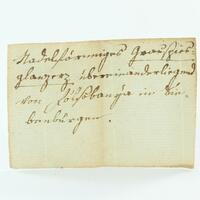 Nadelförmiges Grauspies-
glanzerz übereinanderliegend
von Felsöbanya in Sie-
benbürgen.